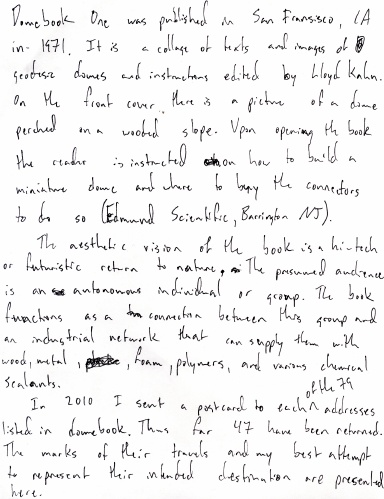 Domebook One was published in San Fransisco, CA
in 1971. It is a collage of texts and images of
geodesic domes and instructions edited by Lloyd Kahn.
On the front cover there is a picture of a dome
perched on a wooded slope. Upon opening the book
the reader is instructed on how to build a
miniature dome and where to buy the connectors
to do so (Edmund Scientific, Barrington NJ).
The aesthetic vision of the book is a hi-tech
or futuristic return to nature. The presumed audience
is an autonomous individual or group. The book
functions as a connection between this group and
an industrial network that can supply them with
wood, metal, foam, polymers, and various chemical
sealants.
In 2010 I sent a postcard to each of the 79 addresses
listed in domebook. Thus far 47 have been returned.
The marks of their travels and my best attempt
to represent their intended destination are presented
here.